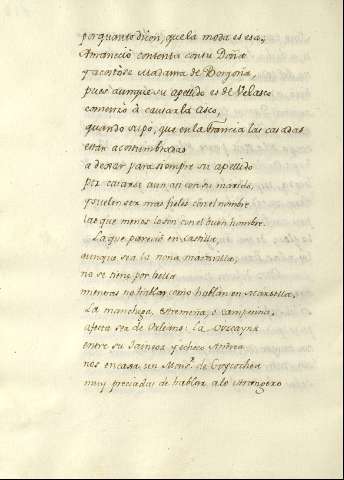 por quanto dicen, que la moda es esa;
Amaneció contenta con su Doña
y acostóse Madama de Borgoña,
pues aunque su apellido es de Velasco
comenzó à causarla asco,
quando supo, que en la Francia las casadas
estan acostumbradas
a dexar para siempre su apellido
por casarse aun asi con su marido,
y suelen ser mas fieles con el nombre
las que menos lo son con el buen hombre.
La que parecio en Castilla,
aunque sea la nona maravilla,
no se tiene por bella
mientras no hablan como hablan en Marsella.
La manchega, estremeña, o campesina,
afecta ser de Orleans: la Viscayna
entre su Jaencoa y echeco Andrea
nos encaxa un Monsr. de Goycochea
muy preciadas de hablar a lo estrangero